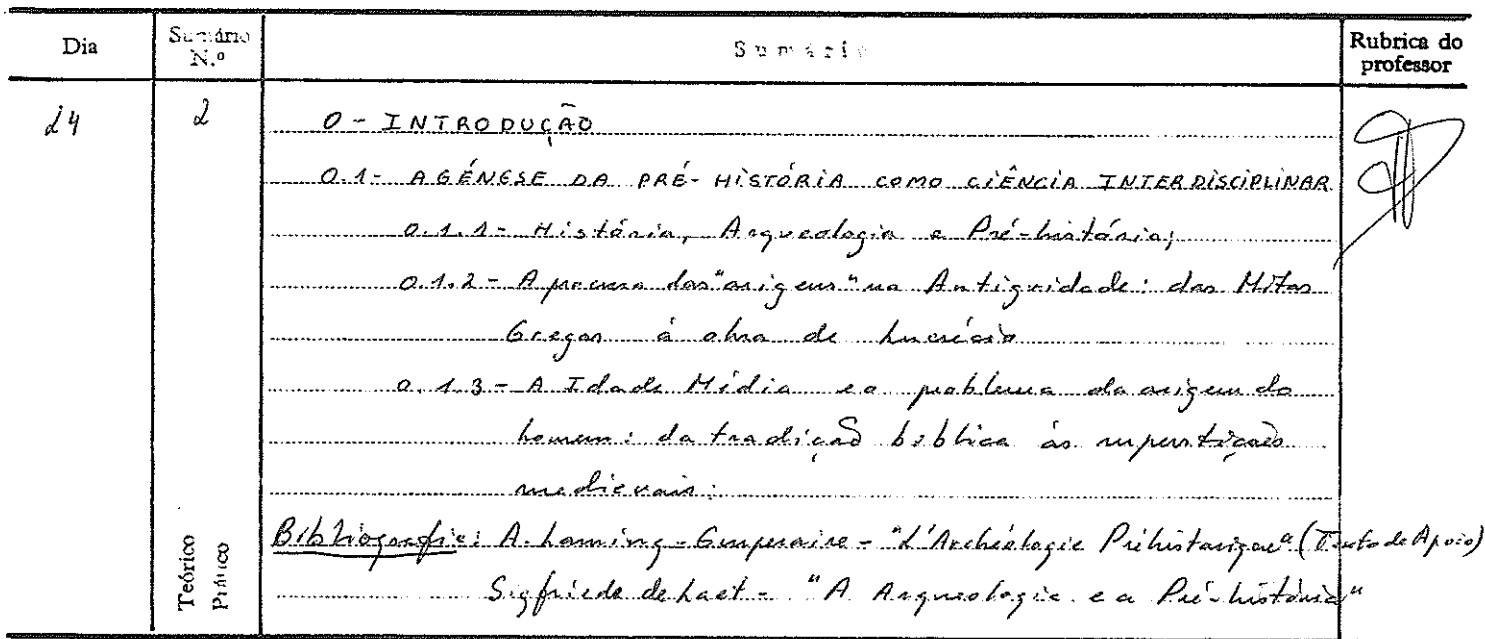 Dia Sumário N.º Sumário Rubrica do professor
24 2 0 - INTRODUÇÃO
0.1 - A GÉNESE DA PRÉ-HISTÓRIA COMO CIÊNCIA INTERDISCIPLINAR
0.1.1 - História, Arqueologia e Pré-história;
0.1.2 - A procura das "origens" na Antiguidade: dos Mitos
Gregos á obra de Lucrécio
0.1.3 - A Idade Média e o problema da origem do
homem: da tradição bíblica ás superstições
medievais;
Bibliografia: A. Laming-Emperaire - "L'Archéologie Préhistorique" (Texto de Apoio)
Sigfriede de Laet - "A Arqueologia e a Pré-história"
Teórico
Prático